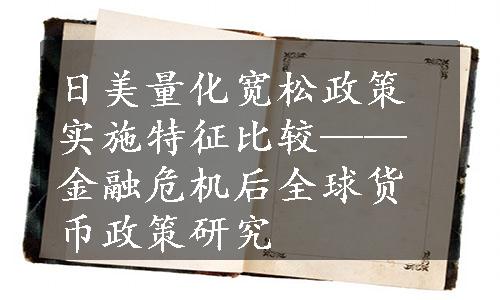 日美量化宽松政策
实施特征比较——
金融危机后全球货
币政策研究